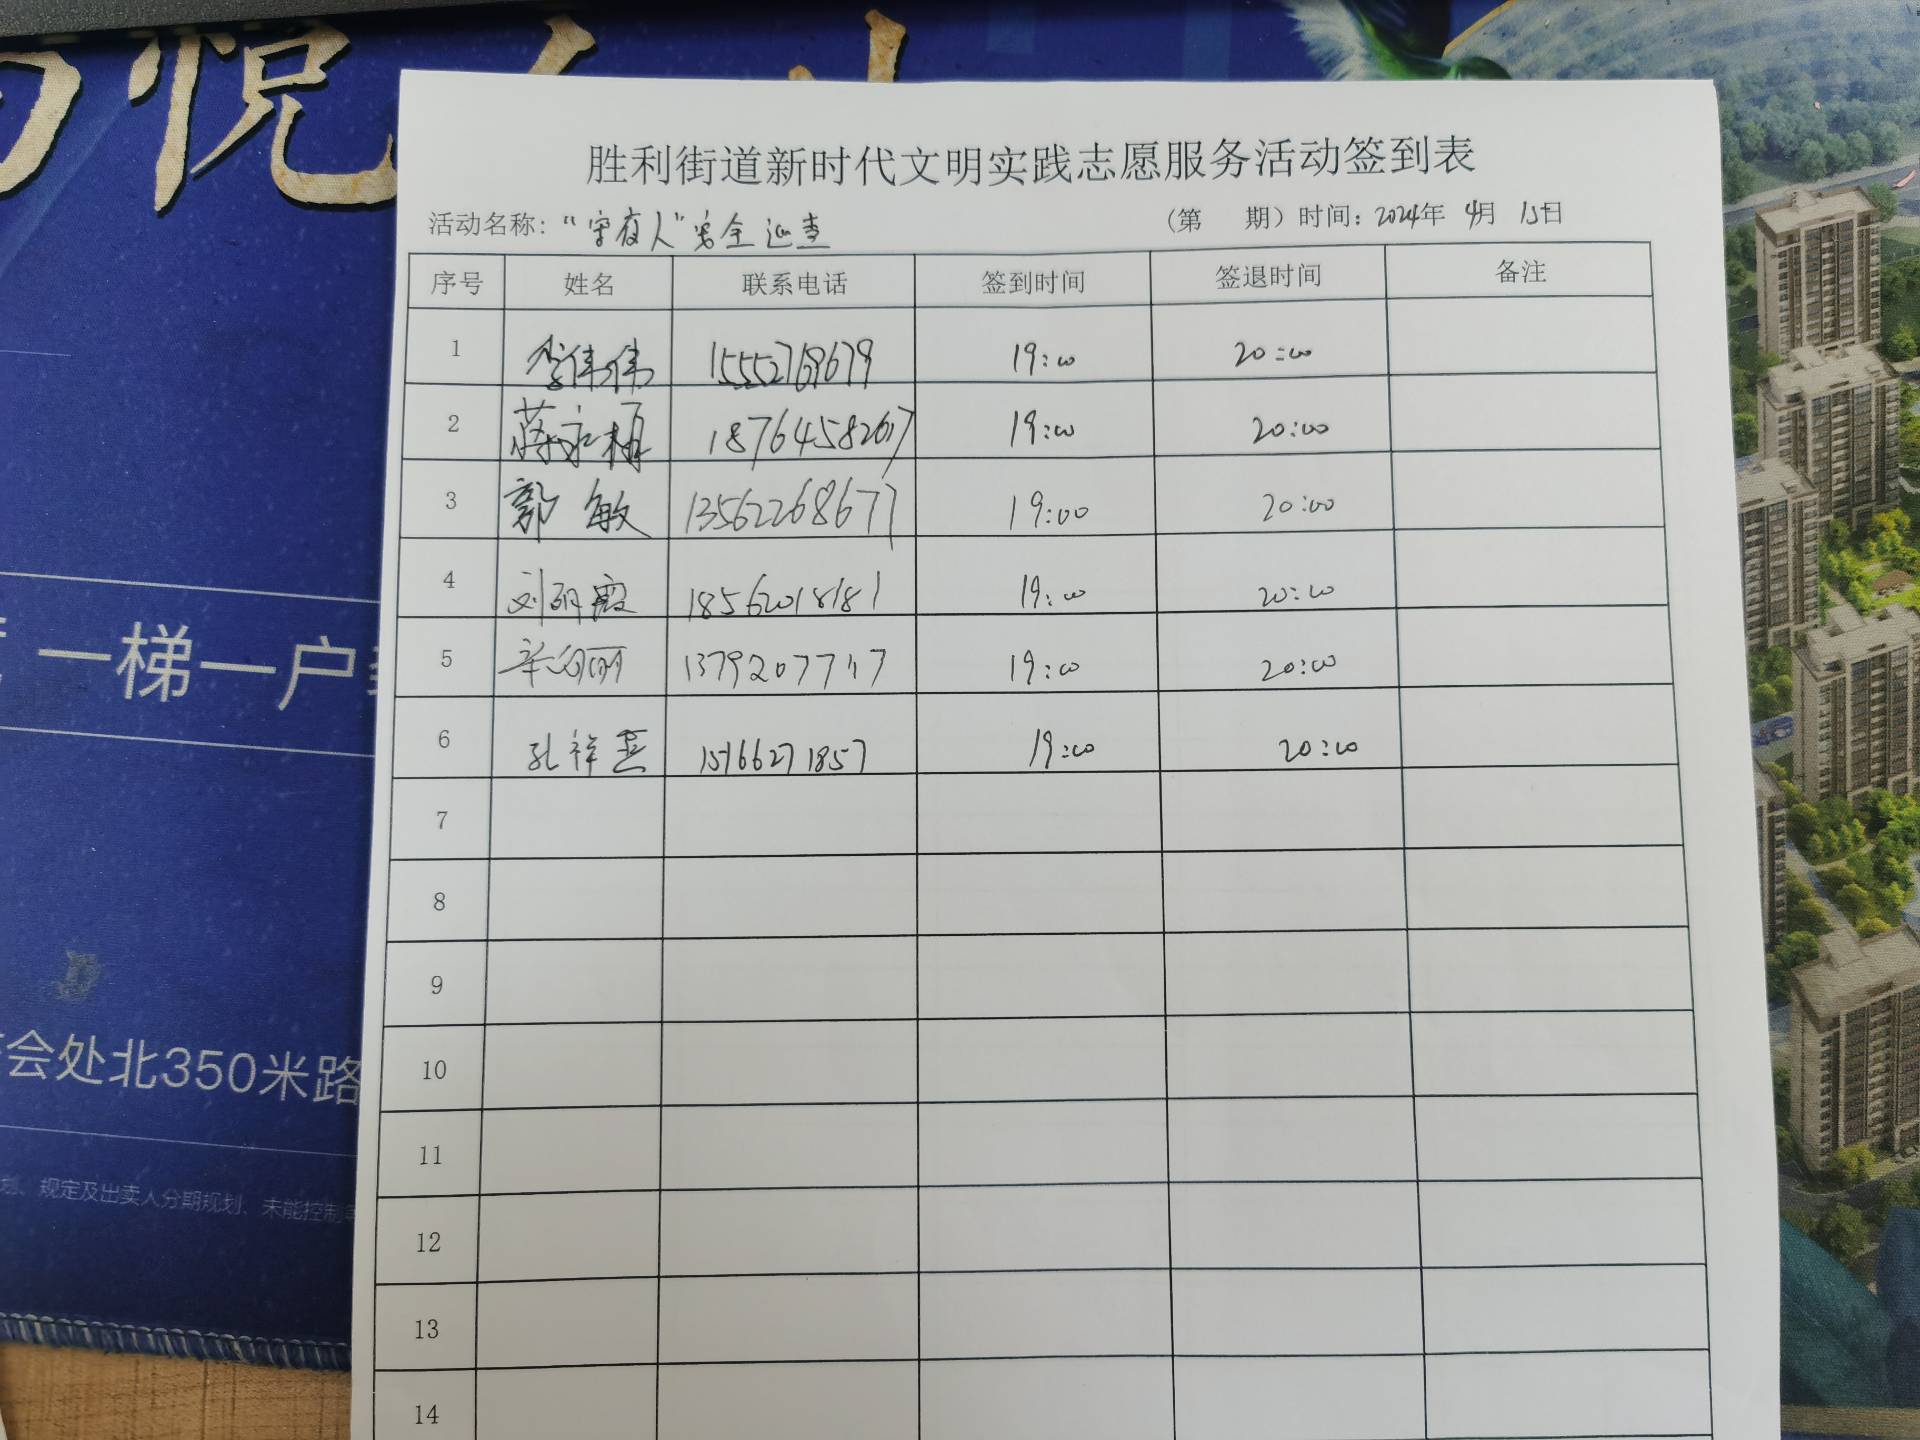 悦
一梯一户
会处北350米路
规定及出卖人分期规划、未能控制
胜利街道新时代文明实践志愿服务活动签到表
活动名称：“守夜人”安全巡查 （第 期）时间：2024年 4月 15日
序号 姓名 联系电话 签到时间 签退时间 备注
1 李伟伟 15552769679 19:00 20:00
2 18764582617 19:00 20:00
3 郭敏 13562268677 19:00 20:00
4 刘丽霞 18562018181 19:00 20:00
5 13792077717 19:00 20:00
6 孔祥燕 15166271857 19:00 20:00
7
8
9
10
11
12
13
14